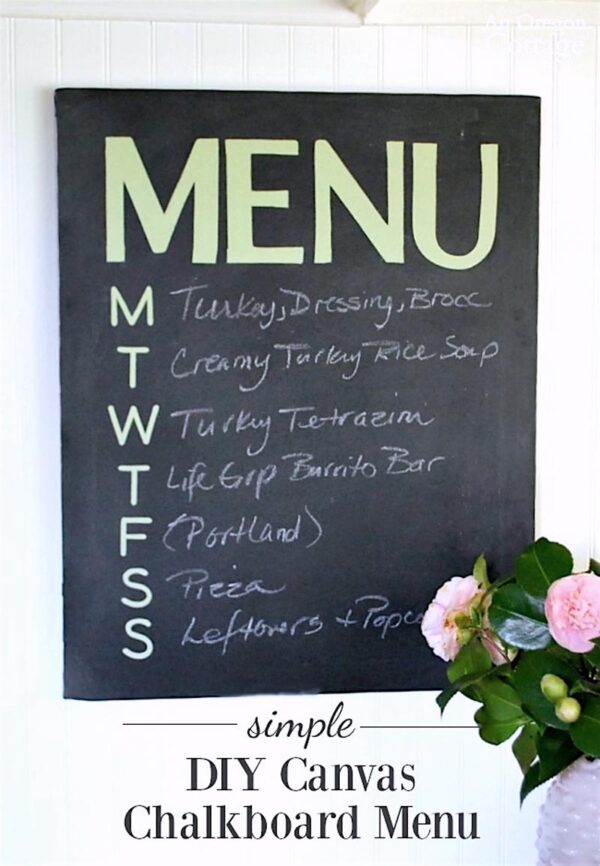 An Oregon
Cottage
MENU
M Turkey, Dressing, Brocc
T Creamy Turkey Rice Soup
W Turkey Tetrazini
T Life Grp Burrito Bar
F (Portland)
S Pizza
S Leftovers + Popc
simple
DIY Canvas
Chalkboard Menu